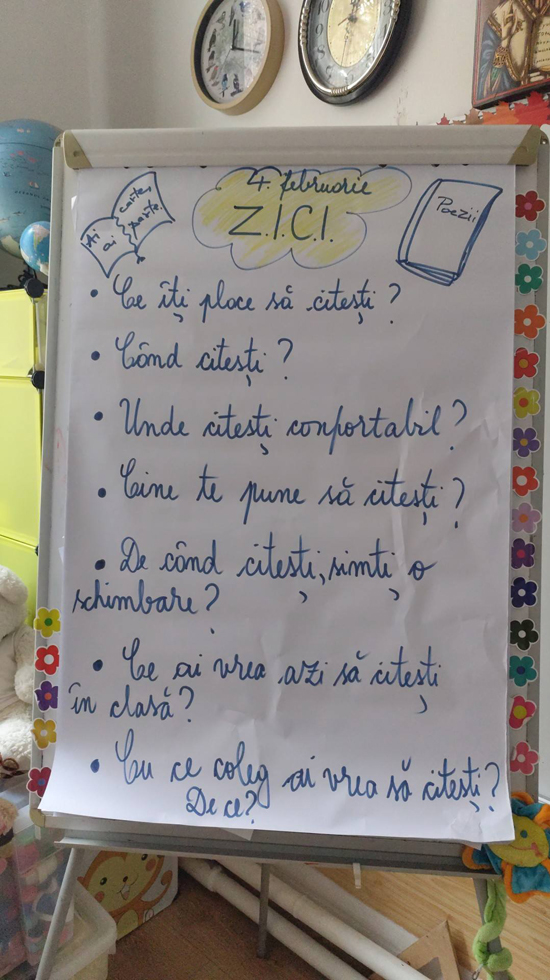 4. februarie
Z.I.C.I.
Ai carte,
ai parte.
Poezii
• Ce îți place să citești?
• Când citești?
• Unde citești confortabil?
• Cine te pune să citești?
• De când citești, simți o
schimbare?
• Ce ai vrea azi să citești
în clasă?
• Cu ce coleg ai vrea să citești?
De ce?